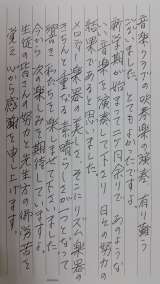 音楽クラブの吹奏楽の演奏、有り難う
ございました。とてもよかったですよ。
新学期が始まって二ケ月余りで、あのような
いい音楽を演奏して下さり、日々の努力の
結果であると思いました。
メロディー楽器の美しさ、そこにリズム楽器の
きちんと重なる素晴らしさが一つとなって
響き、私たちを楽しませて下さいました。
今から、次の楽しみを期待していますよ。
生徒の皆さんの努力と先生方の御苦労を
心から感謝を申し上げます。